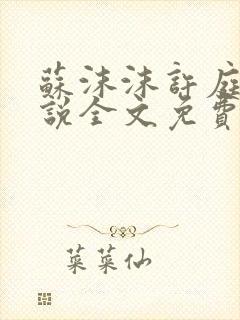 蘇沫沫許庭
說全文免費
菜菜仙